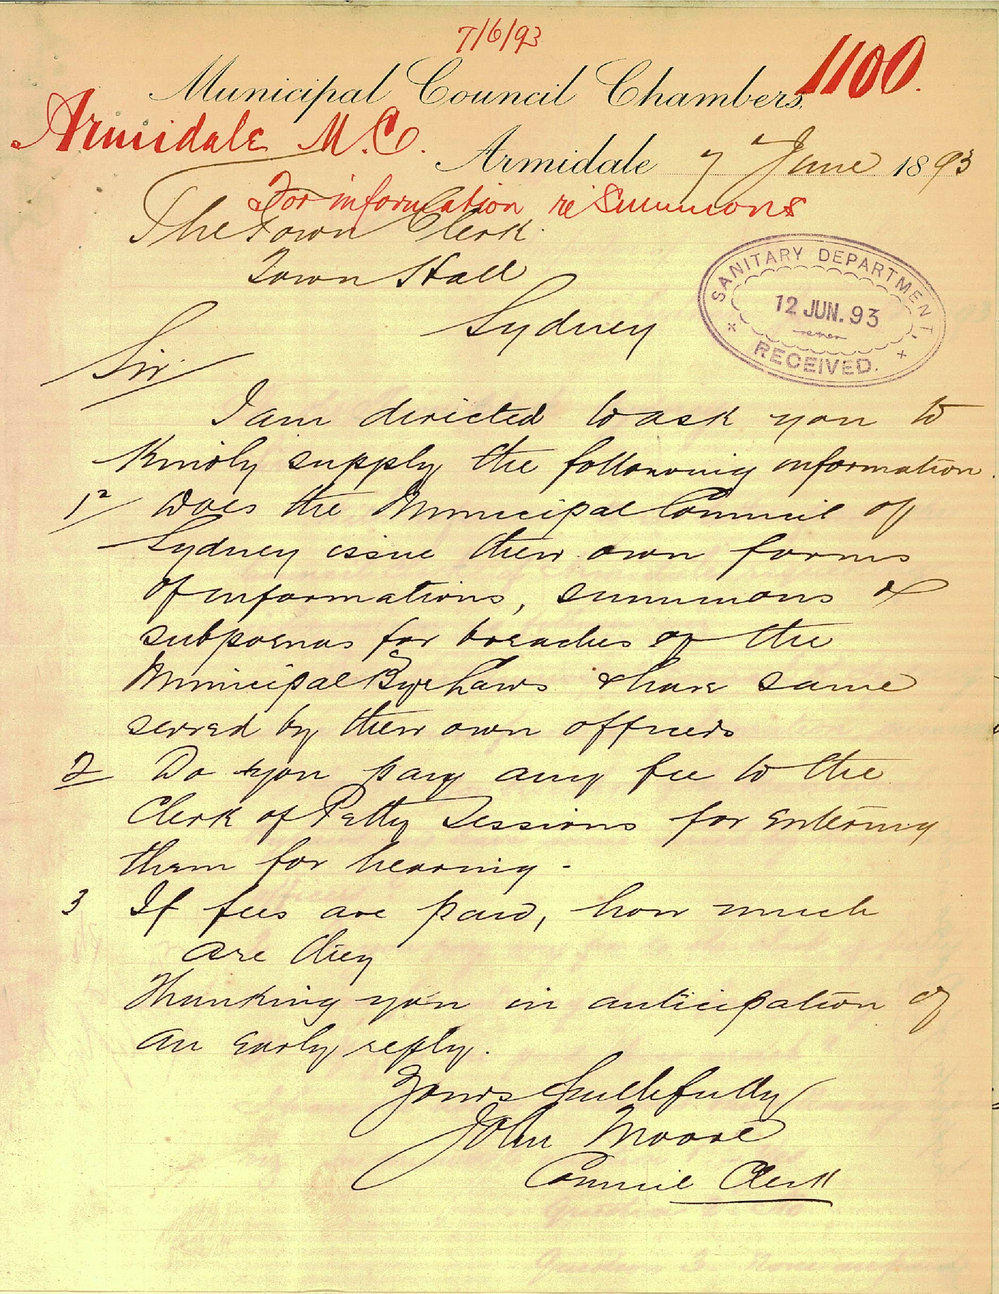 7/6/93
1100.
Municipal Council Chambers.
Armidale M.C.
Armidale 7 June 1893
For information re Summons
The Town Clerk
Town Hall
Sydney
SANITARY DEPARTMENT.
12 JUN. 93
RECEIVED.
Sir
I am directed to ask you to
Kindly supply the following information.
1º/ Does the Municipal Council of
Sydney issue their own forms
of informations, summons &
subpoenas for breaches of the
Municipal Bye Laws & have same
served by their own officers
2 Do you pay any fee to the
Clerk of Petty Sessions for entering
them for hearing -
3 If fees are paid, how much
are they
Thanking you in anticipation of
an early reply.
Yours faithfully
John Moore
Council Clerk